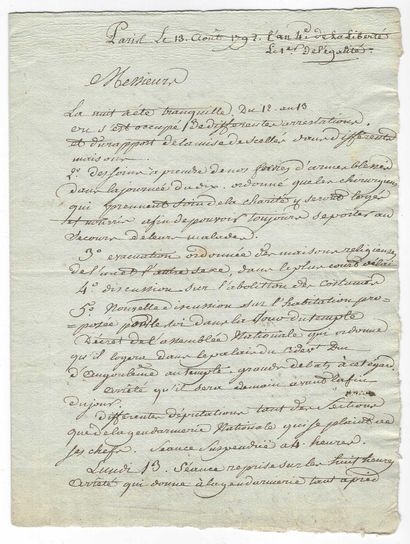 Paris Le 13 Août 1792. L'an 4e de la Liberté
Le 1er de l'égalité.
Messieurs
La nuit a été tranquille Du 12 au 13
on s'est occupé De différentes arrestations
et du rapport de la mise de scellés dans différentes
maisons
2o des soins à prendre de nos frères d'armes blessés
dans la journée du dix. ordonné que les chirurgiens
qui prennent soin de la charité y seront logés
et nourris afin de pouvoir toujours se porter au
secours de leurs malades.
3o évacuation ordonnée des maisons religieuses
de l'un et l'autre sexe, dans le plus court délai
4o discussion sur l'abolition des costumes
5o Nouvelle discussion sur l'habitation pro-
=posée pour le roi dans la Tour du temple
Décret de l'assemblée Nationale qui ordonne
qu'il logera dans le palais du
d'angoulême au temple. grands débats à cet égard.
Arrêté qu'il sera demain avant la fin
du jour.
Différentes députations tant des Sections
que de la gendarmerie Nationale qui se plaint de
ses chefs. Séance Suspendue à 4 heures.
Lundi 13. Séance reprise sur les huit heures
Arrêté qui donne à la gendarmerie tant à pied